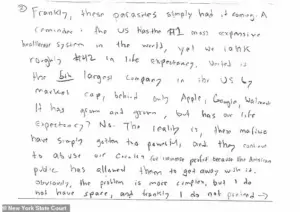 ② Frankly, these parasites simply had it coming. A
reminder: the US has the #1 most expensive
healthcare system in the world, yet we rank
roughly #42 in life expectancy. United is
the largest company in the US by
market cap, behind only Apple, Google, Walmart.
It has grown and grown, but has our life
expectancy? No. The reality is, these
have simply gotten too powerful, and they continue
to abuse our country for immense profit because the American
public has allowed them to get away with it.
Obviously, the problem is more complex, but I do
not have space, and frankly I do not pretend →
© New York State Court